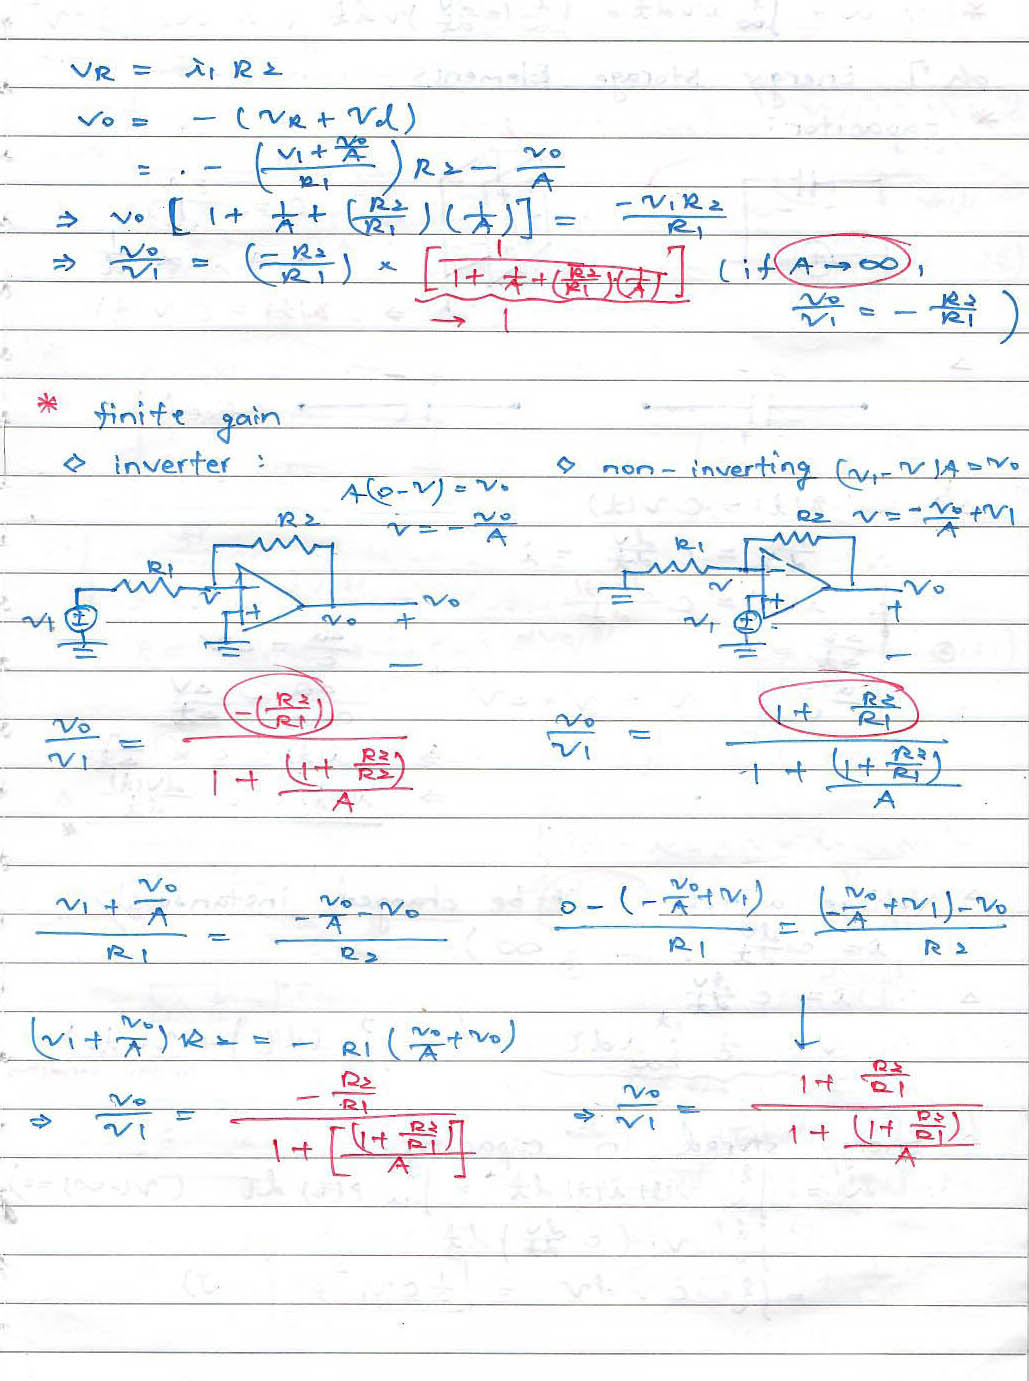 VR = i1 R2
vo = - (VR + Vd)
= - ((V1 + vo/A)/R1) R2 - vo/A
⇒ vo [1 + 1/A + (R2/R1)(1/A)] = -V1R2/R1
⇒ vo/v1 = (-R2/R1) × [1/(1 + 1/A + (R2/R1)·(1/A))] (if A→∞,
→ 1
vo/v1 = - R2/R1)
* finite gain
◇ inverter :
A(0-V) = vo
v = - vo/A
R2
R1
v
v1
vo
vo
+
-
◇ non-inverting (v1-v)A = vo
v = - vo/A + V1
R2
R1
v
v1
vo
+
-
vo/v1 = -(R2/R1) / (1 + (1 + R2/R2)/A)
vo/v1 = (1 + R2/R1) / (1 + (1 + R2/R1)/A)
(v1 + vo/A)/R1 = (-vo/A - vo)/R2
(0 - (-vo/A + v1))/R1 = ((-vo/A + v1) - vo)/R2
(vi + vo/A) R2 = - R1 (vo/A + vo)
↓
⇒ vo/v1 = (-R2/R1) / (1 + [(1 + R2/R1)/A])
⇒ vo/v1 = (1 + R2/R1) / (1 + (1 + R2/R1)/A)